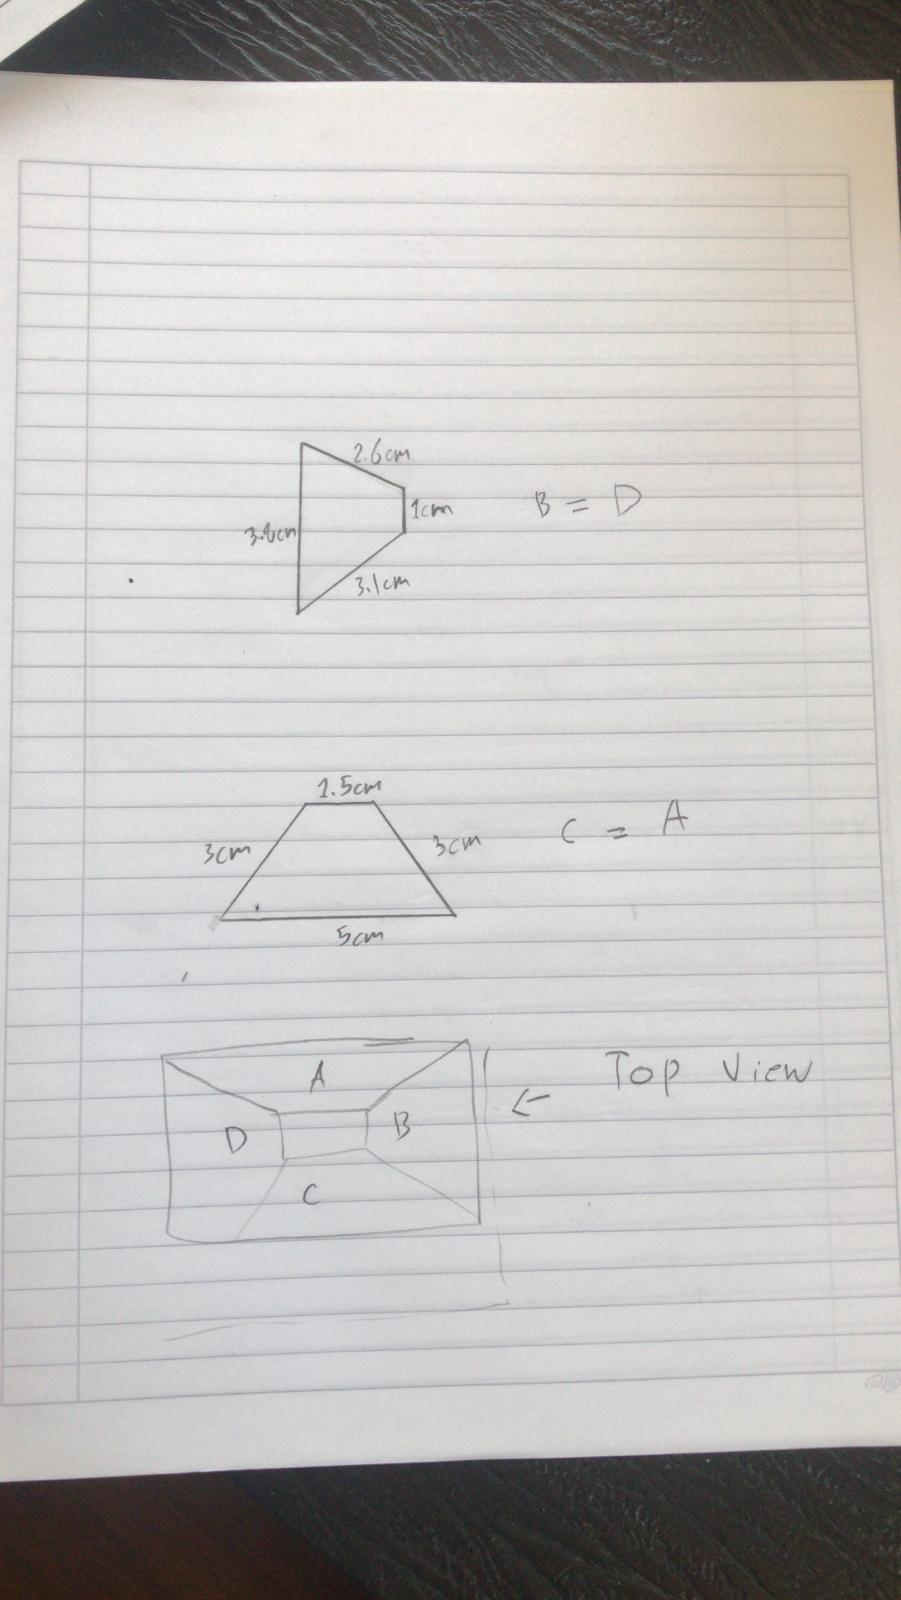 2.6cm
1cm
B = D
3.1cm
1.5cm
C = A
3cm
3cm
5cm
Top View
A
B
D
C